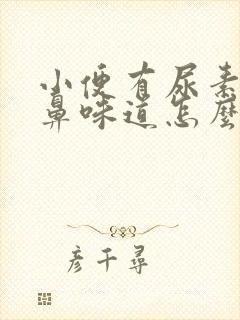 小便有尿素
鼻味道怎麼
彦千尋